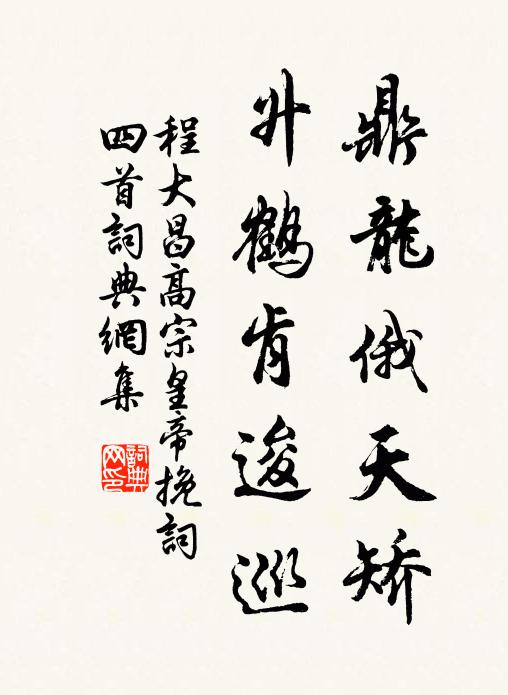 鼎龍俄天矯
升鶴肯逡巡
程大昌高宗皇帝挽詞
四首詞典網集
詞典
网印